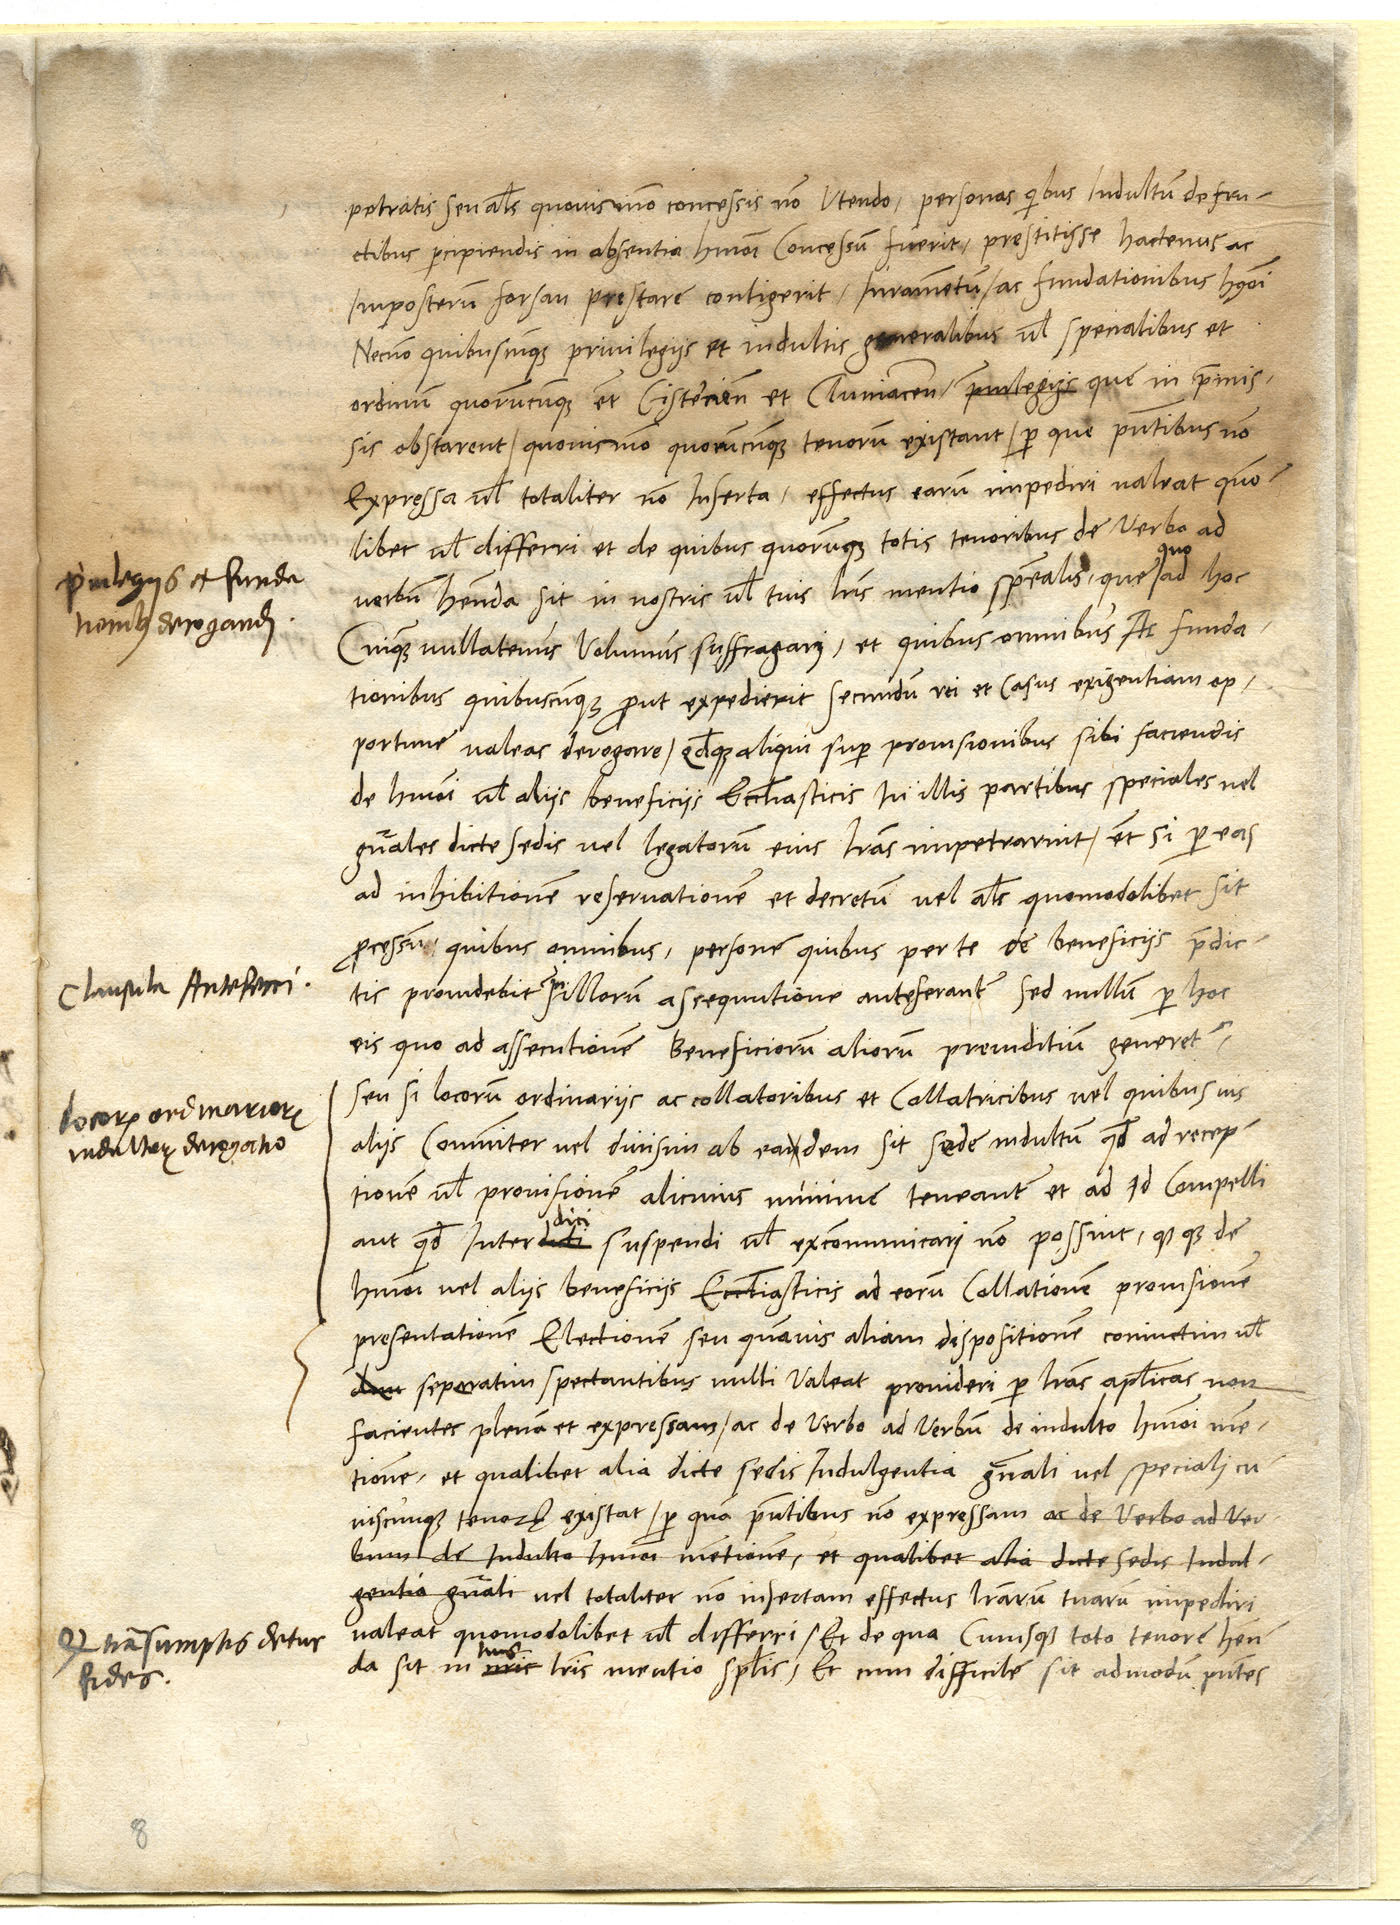 petratis seu als quovismo concessis no Utendo, personas qibus Indultu de fru-
ctibus pcipiendis in absentia hmoi Concessu fuerit, prestitisse hactenus ac
Imposteru forsan prestare contigerit, Iurametu, ac fundationibus hmoi
Necno quibuscuq privilegijs et indultis generalibus ul specialibus et
ordinu quorucuq et Cistercien et Cluniacen, privilegijs que in pmis-
sis obstarent, quovismo quorucuq tenoru existant, p que pntibus no
Expressa ul totaliter no Inserta, effectus earu impediri valeat quo-
libet ul differri et de quibus quoruq totis tenoribus de Verbo ad
verbu henda sit in nostris ul tuis lris mentio specalis, que quo ad hoc
Cuiq nullatenus Volumus suffragarj, et quibus omnibus Ac funda-
tionibus quibuscuq put expedierit secundu rei et Casus exigentiam op-
portune valeas derogare, qdq aliqui sup provisionibus sibi faciendis
de hmoi ul alijs beneficijs Ecclasticis In illis partibus speciales vel
gnales dicte sedis vel legatoru eius lras impetrarint, et si p eas
ad inhibitione reservatione et decretu vel als quomodolibet sit
pcessu, quibus omnibus, persone quibus per te de beneficijs pdic-
tis providebit in illoru assequutione anteferant sed nullu p hoc
eis quo ad assecutione Beneficioru alioru preiuditiu generet,
seu si locoru ordinarijs ac collatoribus et Collatricibus vel quibusvis
alijs Comuniter vel divisim ab eadem sit sede indultu qd ad recep-
tione ul provisione alicuius minime teneant et ad Id Compelli
aut qd Interdici suspendi ul excomunicarj no possint, q q de
hmoi vel alijs beneficijs Ecclasticis ad eoru Collatione provisione
presentatione Electione seu quavis aliam dispositione coniunctim ul
separatim spectantibus nulli Valeat provideri p lras aplicas non
facientes plena et expressam, ac de Verbo ad Verbu de indulto hmoi me-
tione, et qualibet alia dicte sedis Indulgentia gnali vel specialj cu-
iuscuq tenoris existat, p qua pntibus no expressam ac de Verbo ad Ver-
bum de Indulto hmoi metione, et qualibet alia dicte sedis Indul-
gentia gnali vel totaliter no insertam effectus lraru tuaru impediri
valeat quomodolibet ul differri, Et de qua Cuiusq toto tenore hen
da sit in nris tuis lris mentio splis, Et cum difficile sit admodu pntes
privilegijs et funda
tionib derogandi.
Clausula Anteferri.
Locor ordinarior
indultor derogatio
Q transumptis detur
fides.
8